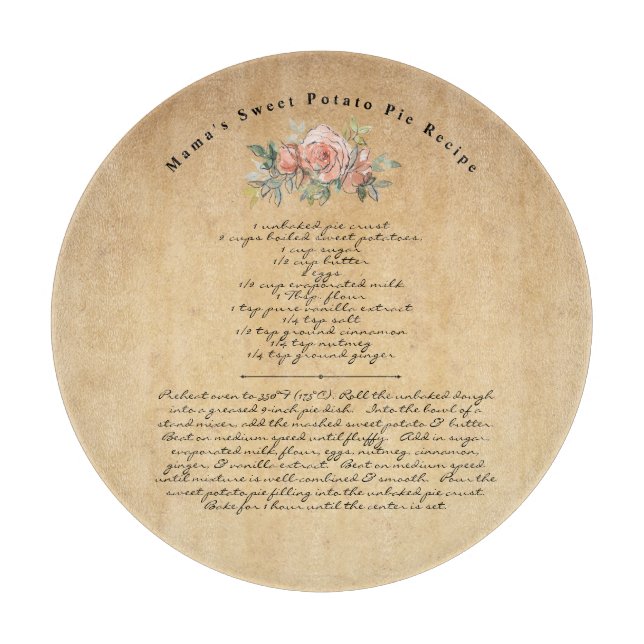 Mama's Sweet Potato Pie Recipe
1 unbaked pie crust
2 cups boiled sweet potatoes,
1 cup sugar
1/2 cup butter
2 eggs
1/2 cup evaporated milk
1 Tbsp. flour
1 tsp pure vanilla extract
1/4 tsp salt
1/2 tsp ground cinnamon
1/4 tsp nutmeg
1/4 tsp ground ginger
Preheat oven to 350°F (175°C). Roll the unbaked dough
into a greased 9-inch pie dish. Into the bowl of a
stand mixer, add the mashed sweet potato & butter.
Beat on medium speed until fluffy. Add in sugar,
evaporated milk, flour, eggs, nutmeg, cinnamon,
ginger, & vanilla extract. Beat on medium speed
until mixture is well-combined & smooth. Pour the
sweet potato pie filling into the unbaked pie crust.
Bake for 1 hour until the center is set.